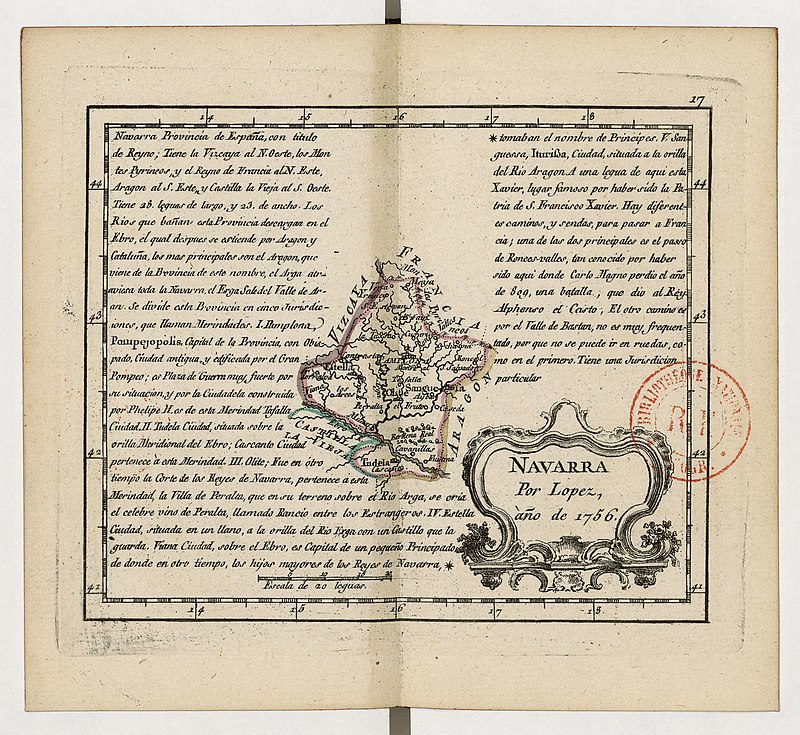 17
14 15 16 17 18
Navarra Provincia de España, con titulo
de Reyno; Tiene la Vizcaya al N. Oeste, los Mon
tes Pyrineos, y el Reyno de Francia al N. Este,
Aragon al S. Este, y Castilla la Vieja al S. Oeste.
Tiene 28. leguas de largo, y 23. de ancho. Los
Rios que bañan esta Provincia desenguan en el
Ebro, el qual despues se estiende por Aragon y
Cataluña, los mas principales son el Aragon, que
viene de la Provincia de este nombre, el Arga atr-
aviesa toda la Navarra, el Erga Sale del Valle de Ar-
an. Se divide esta Provincia en cinco Jurisdic-
iones, que llaman Merindades. I. Pamplona,
Pompejopolis, Capital de la Provincia, con Obis-
pado, Ciudad antigua, y edificada por el Gran
Pompeo; es Plaza de Guerra muy fuerte por
su situacion, y por la Ciudadela construida
por Phelipe II. es de esta Merindad Tafalla
Ciudad. II. Tudela Ciudad, situada sobre la
orilla Meridional del Ebro; Cascante Ciudad
pertenece à esta Merindad. III. Olite; Fue en otro
tiempo la Corte de los Reyes de Navarra, pertenece à esta
Merindad, la Villa de Peralta, que en su terreno sobre el Rio Arga, se cria
el celebre vino de Peralta, llamado Rancio entre los Estrangeros. IV. Estella
Ciudad, situada en un llano, a la orilla del Rio Erga con un Castillo que la
guarda. Viana Ciudad, sobre el Ebro, es Capital de un pequeño Principado
de donde en otro tiempo, los hijos mayores de los Reyes de Navarra, *
* tomaban el nombre de Principes. V. San-
guessa, Iturissa, Ciudad, situada a la orilla
del Rio Aragon. A una legua de aqui esta
Xavier, lugar famoso por haber sido la Pa-
tria de S. Francisco Xavier. Hay diferent-
es caminos, y sendas, para pasar a Fran-
cia; una de las dos principales es el paseo
de Ronces-valles, tan conocido por haber
sido aqui donde Carlo Magno perdio el año
de 809, una batalla, que dio al Rey
Alphonso el Casto; El otro camino es
por el Valle de Bastan, no es muy frequen-
tado, por que no se puede ir en ruedas, co-
mo en el primero. Tiene una Jurisdicion
particular
44 44
43 43
42 42
41 41
FRANCIA
VIZCAYA
ARAGON
CASTILLA
LA VIEJA
Maya
Estella
Olite
Tafalla
Sanguessa
Peralta
Caseda
Viana
los Arcos
Bardena Real
Cavanillas
Tudela
Cascante
NAVARRA
Por Lopez,
año de 1756.
Escala de 20 leguas.
14 15 16 17 18